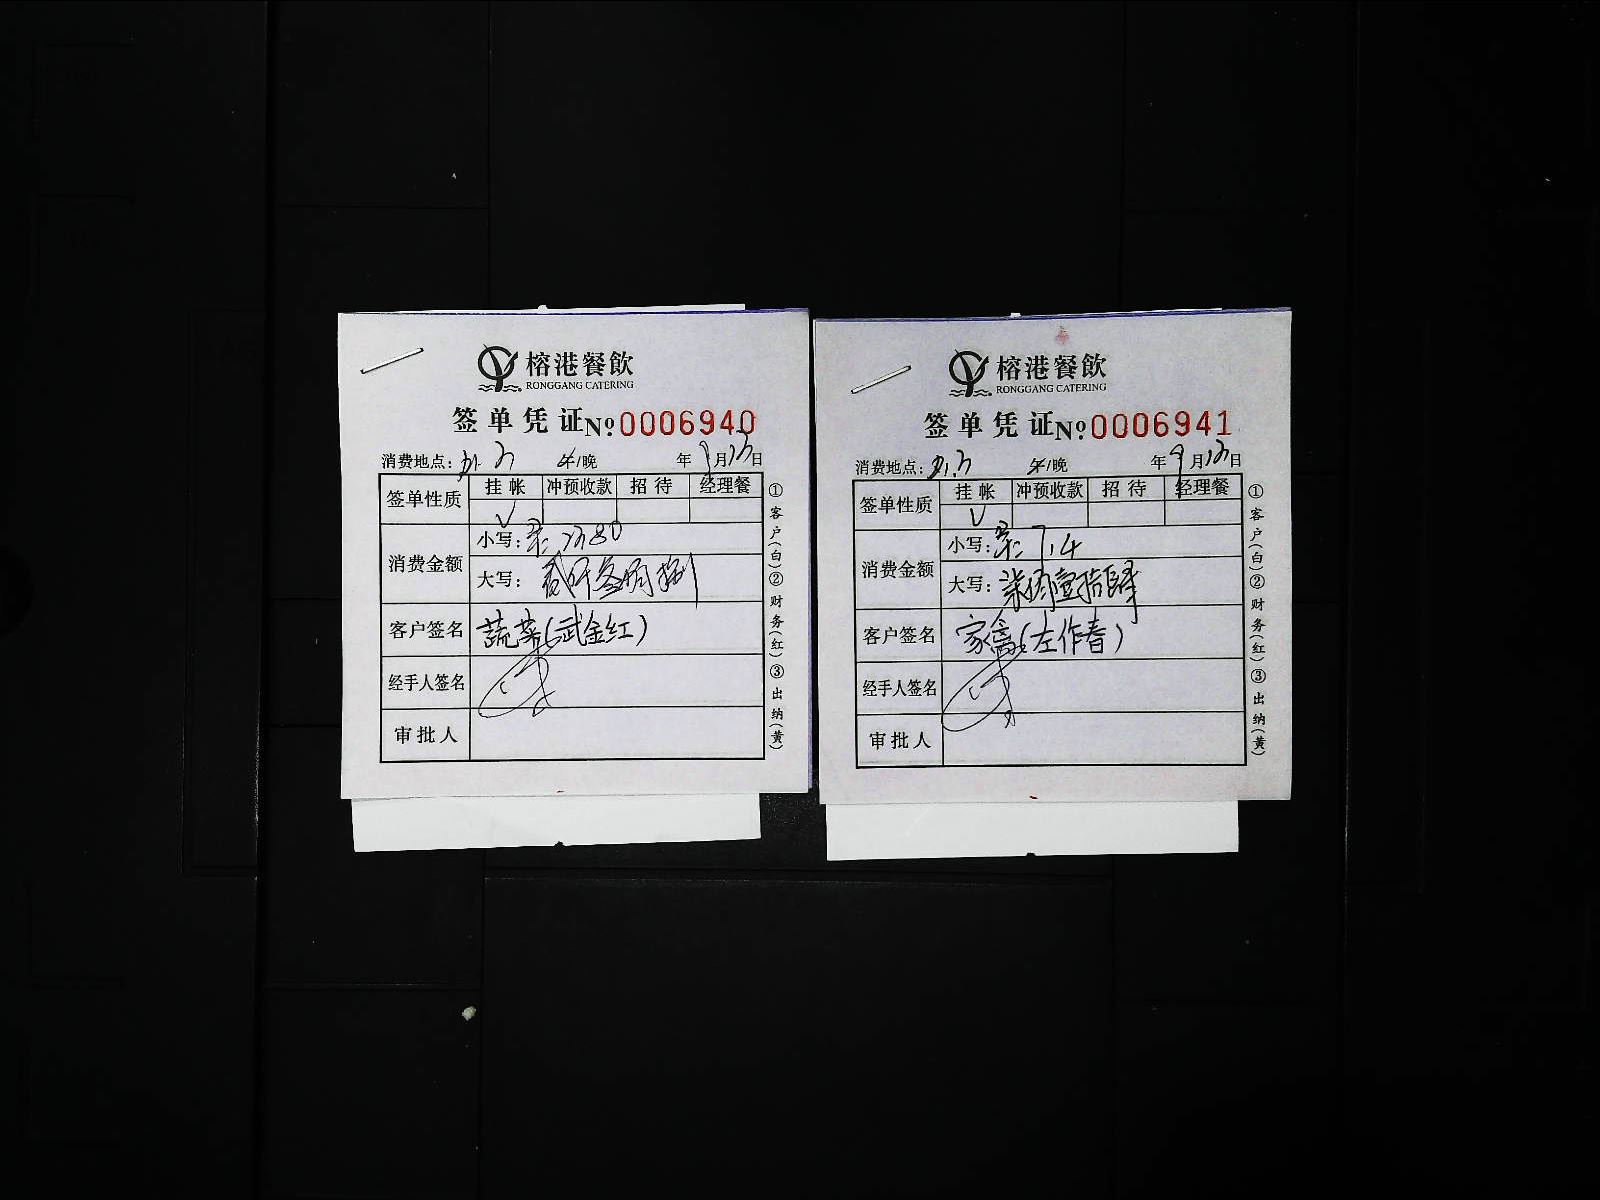 榕港餐飲
RONGGANG CATERING
签单凭证 Nº 0006940
消费地点: 午/晚 年 9月13日
签单性质 挂帐 冲预收款 招待 经理餐
V
消费金额 小写:
大写:
客户签名 蔬菜(武金红)
经手人签名
审批人
①客户(白)②财务(红)③出纳(黄)
榕港餐飲
RONGGANG CATERING
签单凭证 Nº 0006941
消费地点: 午/晚 年 9月13日
签单性质 挂帐 冲预收款 招待 经理餐
V
消费金额 小写:
大写: 柒佰壹拾肆
客户签名 家禽(左作春)
经手人签名
审批人
①客户(白)②财务(红)③出纳(黄)